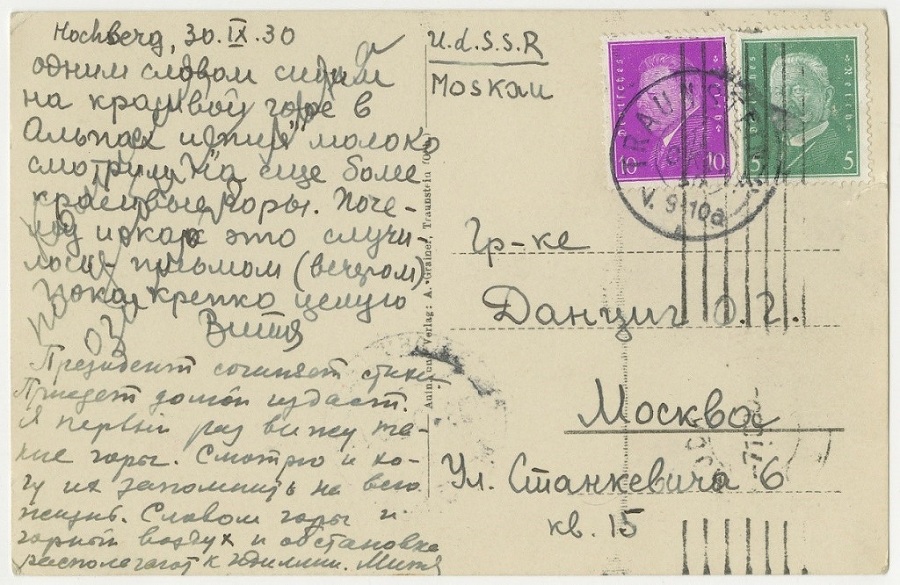 Hochberg, 30.IX.30
одним словом сидим
на красивой горе в
Альпах и "пия" молоко
смотрим на еще более
красивые горы. Поче-
му и как это случи-
лось - письмом (вечером)
Пока крепко целую
Витя
Президент сочиняет стихи
Приедет домой издаст.
Я первый раз вижу та-
кие горы. Смотрю и хо-
чу их запомнить на всю
жизнь. Словом горы и
горный воздух и обстановка
располагают к идиллии. Митя
Anim und Verlag: A. Grainer, Traunstein
U.d.S.S.R
Moskau
Deutsches Reich
10 10
Deutsches Reich
5 5
TRAUNSTEIN
V. 9-10a
Гр-ке
Данциг О.Г.
Москва
Ул. Станкевича 6
кв. 15